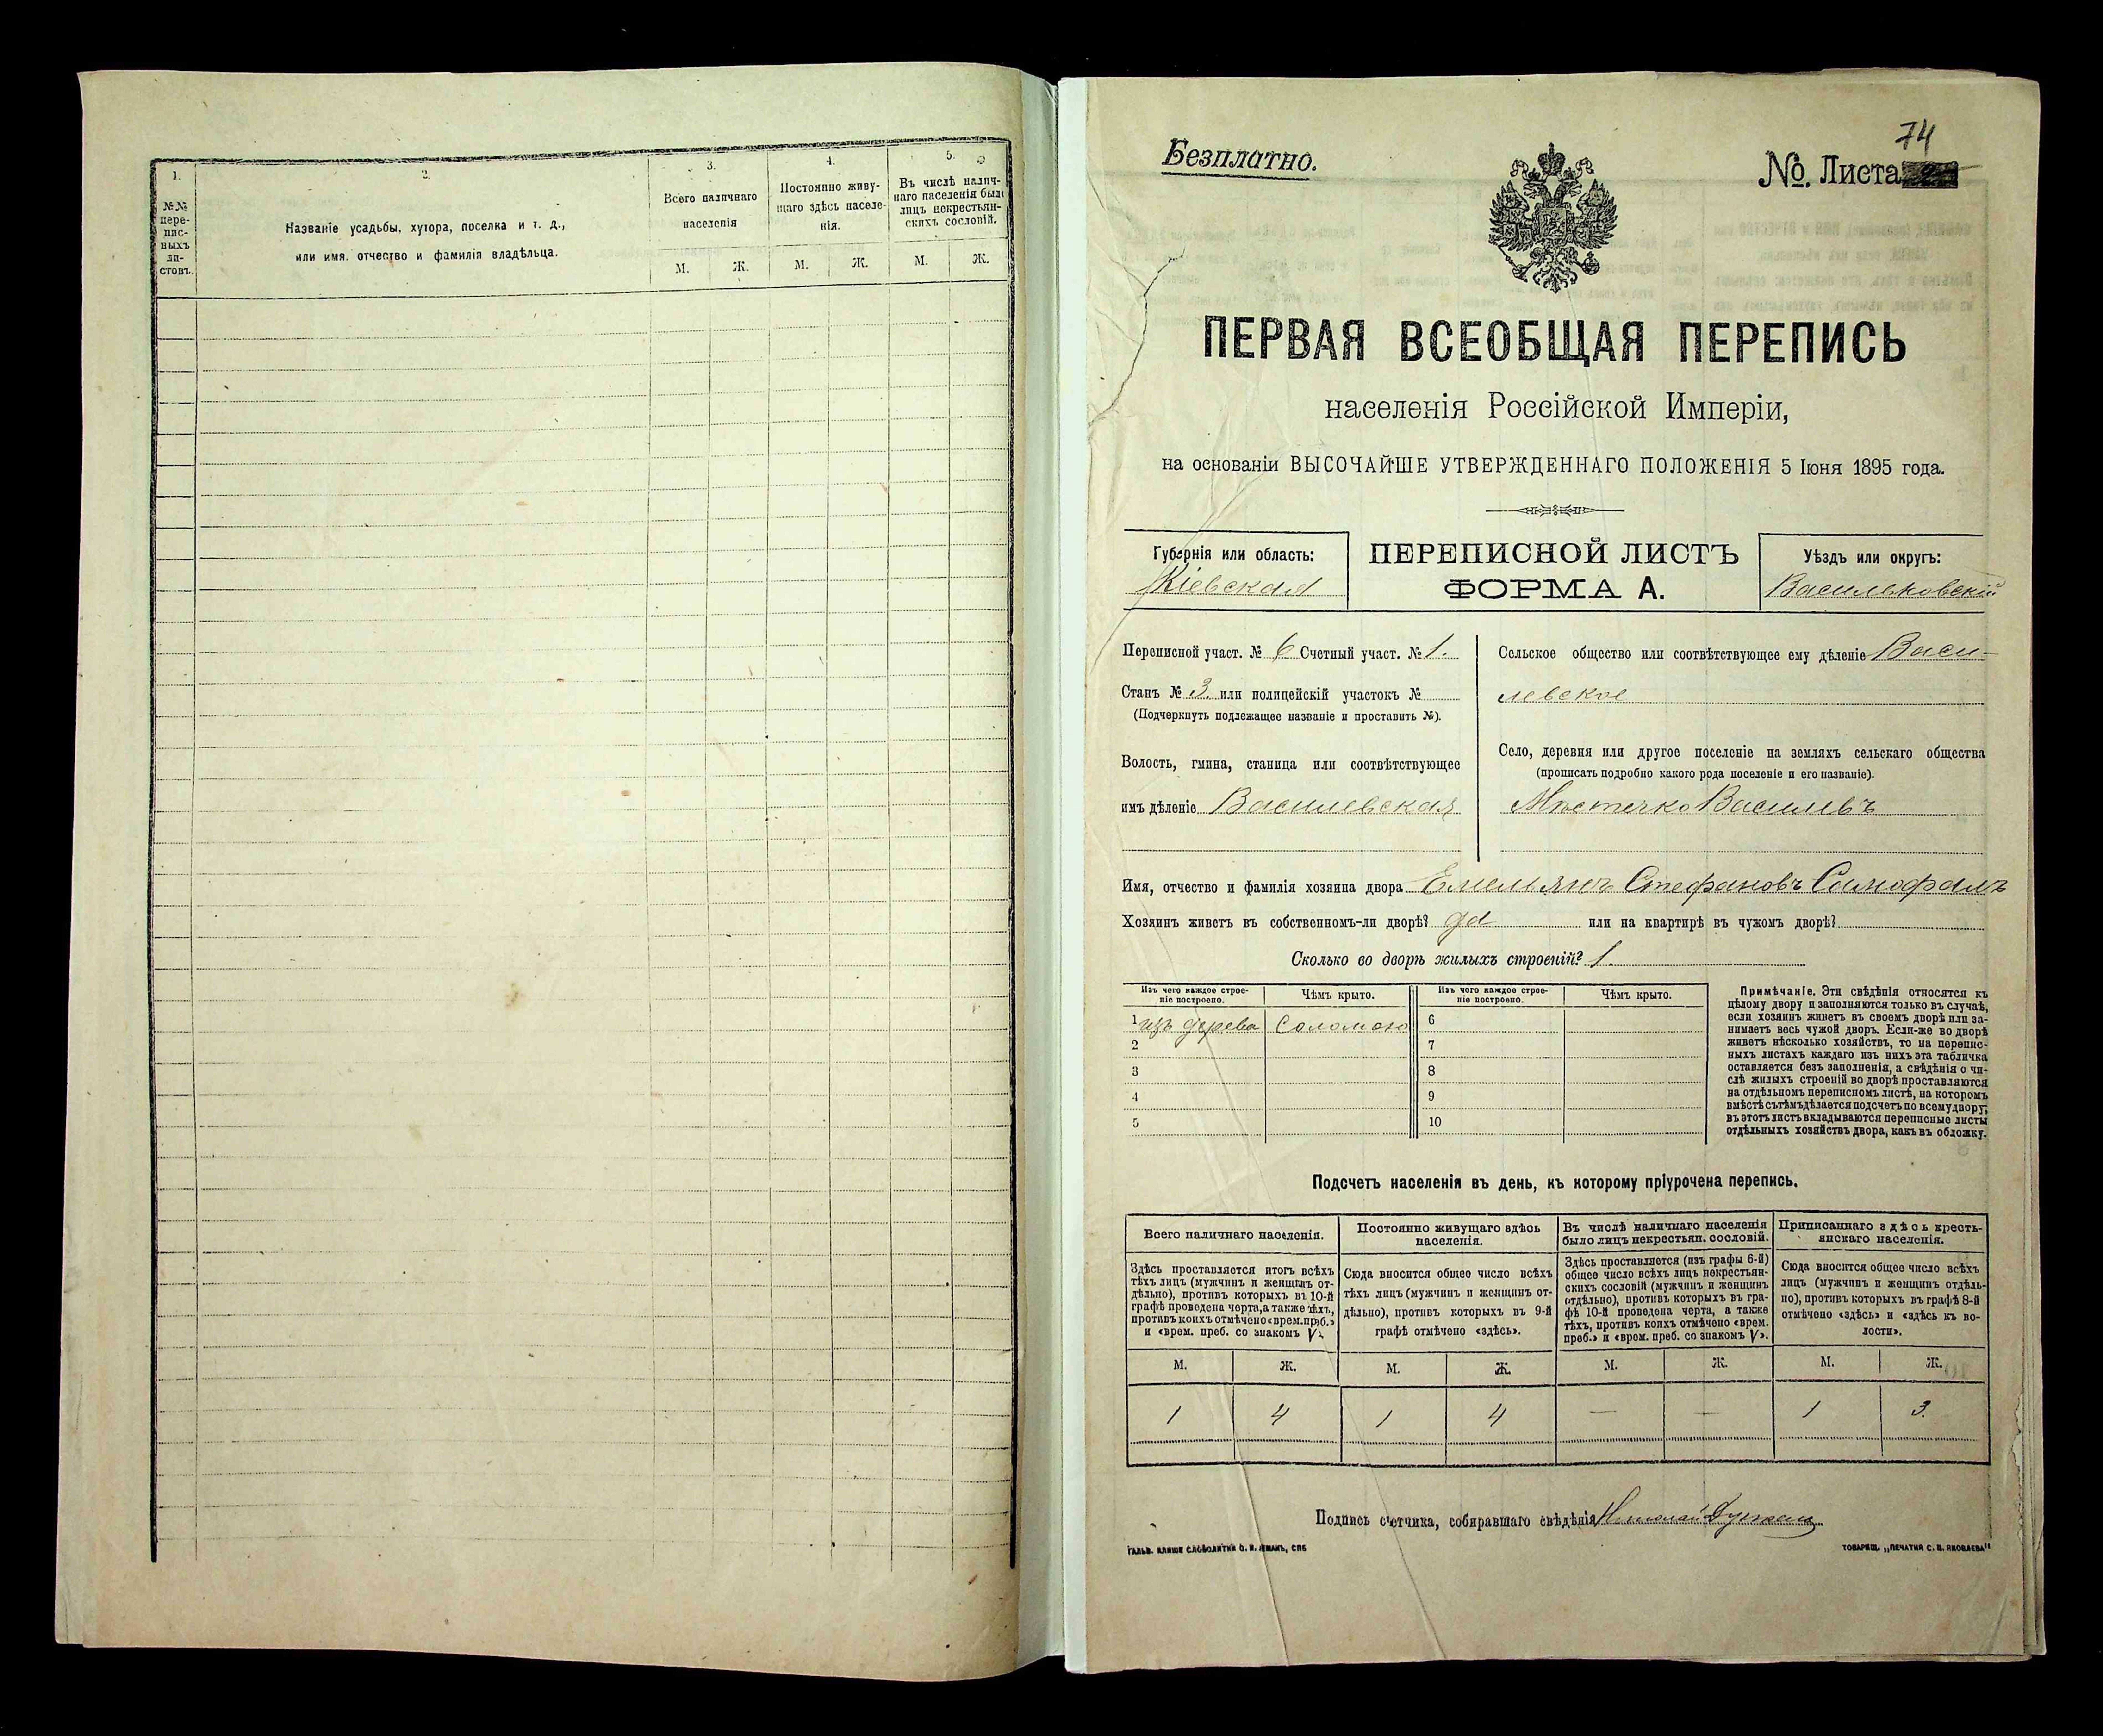 1.
№№ пере-
пис-
ныхъ
ли-
стовъ.
2.
Названіе усадьбы, хутора, поселка и т. д.,
или имя, отчество и фамилія владѣльца.
3.
Всего наличнаго
населенія
М. Ж.
4.
Постоянно живу-
щаго здѣсь населе-
нія.
М. Ж.
5.
Въ числѣ налич-
наго населенія было
лицъ некрестьян-
скихъ сословій.
М. Ж.
74
Безплатно.
№ Листа
ПЕРВАЯ ВСЕОБЩАЯ ПЕРЕПИСЬ
населенія Россійской Имперіи,
на основаніи ВЫСОЧАЙШЕ УТВЕРЖДЕННАГО ПОЛОЖЕНІЯ 5 Іюня 1895 года.
Губернія или область:
Кіевская
ПЕРЕПИСНОЙ ЛИСТЪ
ФОРМА А.
Уѣздъ или округъ:
Васильковскій
Переписной участ. № 6 Счетный участ. № 1.
Станъ № 3. или полицейскій участокъ №
(Подчеркнуть подлежащее названіе и проставить №).
Волость, гмина, станица или соотвѣтствующее
имъ дѣленіе Василевская
Сельское общество или соотвѣтствующее ему дѣленіе Васи-
левское
Село, деревня или другое поселеніе на земляхъ сельскаго общества
(прописать подробно какого рода поселеніе и его названіе).
Мѣстечко Василевъ
Имя, отчество и фамилія хозяина двора Емельянъ Стефановъ
Хозяинъ живетъ въ собственномъ-ли дворѣ? да или на квартирѣ въ чужомъ дворѣ?
Сколько во дворѣ жилыхъ строеній? 1.
Изъ чего каждое строе-
ніе построено.
Чѣмъ крыто.
Изъ чего каждое строе-
ніе построено.
Чѣмъ крыто.
1 изъ дерева Соломою 6
2 7
3 8
4 9
5 10
Примѣчаніе. Эти свѣдѣнія относятся къ
цѣлому двору и заполняются только въ случаѣ,
если хозяинъ живетъ въ своемъ дворѣ или за-
нимаетъ весь чужой дворъ. Если-же во дворѣ
живетъ нѣсколько хозяйствъ, то на перепис-
ныхъ листахъ каждаго изъ нихъ эта табличка
оставляется безъ заполненія, а свѣдѣнія о чи-
слѣ жилыхъ строеній во дворѣ проставляются
на отдѣльномъ переписномъ листѣ, на которомъ
вмѣстѣ съ тѣмъ дѣлается подсчетъ по всему двору;
въ этотъ листъ вкладываются переписные листы
отдѣльныхъ хозяйствъ двора, какъ въ обложку.
Подсчетъ населенія въ день, къ которому пріурочена перепись.
Всего наличнаго населенія.
Здѣсь проставляется итогъ всѣхъ
тѣхъ лицъ (мужчинъ и женщинъ от-
дѣльно), противъ которыхъ въ 10-й
графѣ проведена черта, а также тѣхъ,
противъ коихъ отмѣчено «врем. преб.»
и «врем. преб. со знакомъ V».
М. Ж.
1 4
Постоянно живущаго здѣсь
населенія.
Сюда вносится общее число всѣхъ
тѣхъ лицъ (мужчинъ и женщинъ от-
дѣльно), противъ которыхъ въ 9-й
графѣ отмѣчено «здѣсь».
М. Ж.
1 4
Въ числѣ наличнаго населенія
было лицъ некрестьян. сословій.
Здѣсь проставляется (изъ графы 6-й)
общее число всѣхъ лицъ некрестьян-
скихъ сословій (мужчинъ и женщинъ
отдѣльно), противъ которыхъ въ гра-
фѣ 10-й проведена черта, а также
тѣхъ, противъ коихъ отмѣчено «врем.
преб.» и «врем. преб. со знакомъ V».
М. Ж.
— —
Приписаннаго здѣсь кресть-
янскаго населенія.
Сюда вносится общее число всѣхъ
лицъ (мужчинъ и женщинъ отдѣль-
но), противъ которыхъ въ графѣ 8-й
отмѣчено «здѣсь» и «здѣсь къ во-
лости».
М. Ж.
1 3.
Подпись счетчика, собиравшаго свѣдѣнія
ТОВАРИЩ. „ПЕЧАТНЯ С. П. ЯКОВЛЕВА“